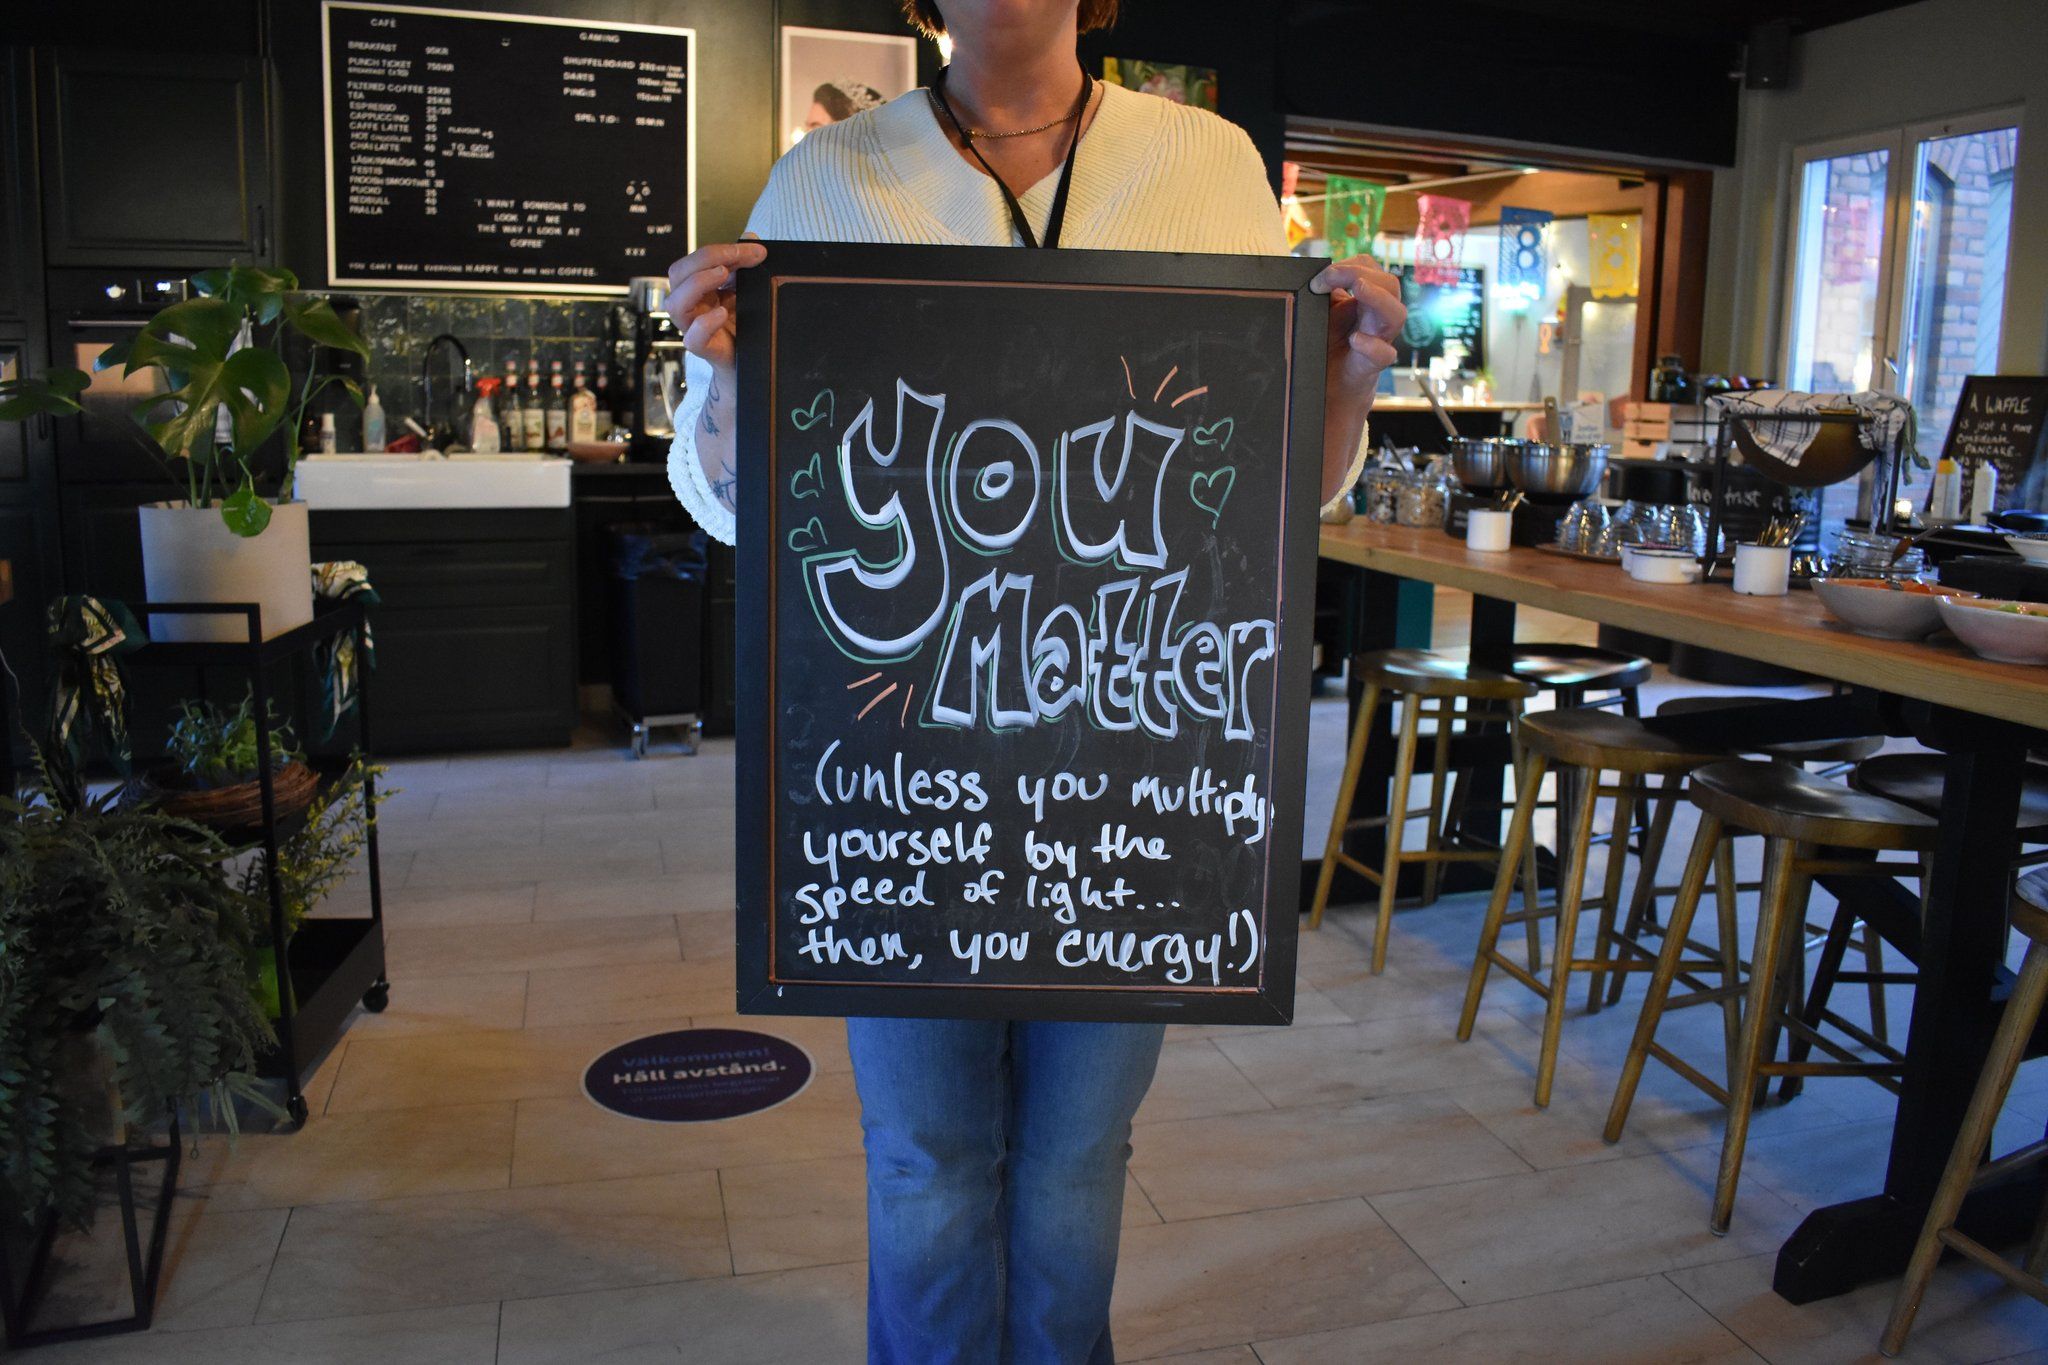 CAFÉ
BREAKFAST 95KR
PUNCH TICKET 755KR
FILTERED COFFEE 25KR
TEA 25KR
ESPRESSO 25/30
CAPPUCCINO 35
CAFFE LATTE 45 FLAVOUR +5
HOT CHOCOLATE 35 TO GO?
CHAI LATTE 40 NO PROBLEM!
FESTIS 15
PUCKO 35
REDBULL 40
FRALLA 35
GAMING
SHUFFELBOARD
DARTS
PINGIS
SPELTID: 55MIN
"I WANT SOMEONE TO
LOOK AT ME
THE WAY I LOOK AT
COFFEE"
UWU
XXX
YOU CAN'T MAKE EVERYONE HAPPY, YOU ARE NOT COFFEE.
you
Matter
(unless you multiply
yourself by the
speed of light...
then, you energy!)
A WAFFLE
is just a more
confidente
PANCAKE.
Välkommen!
Håll avstånd.